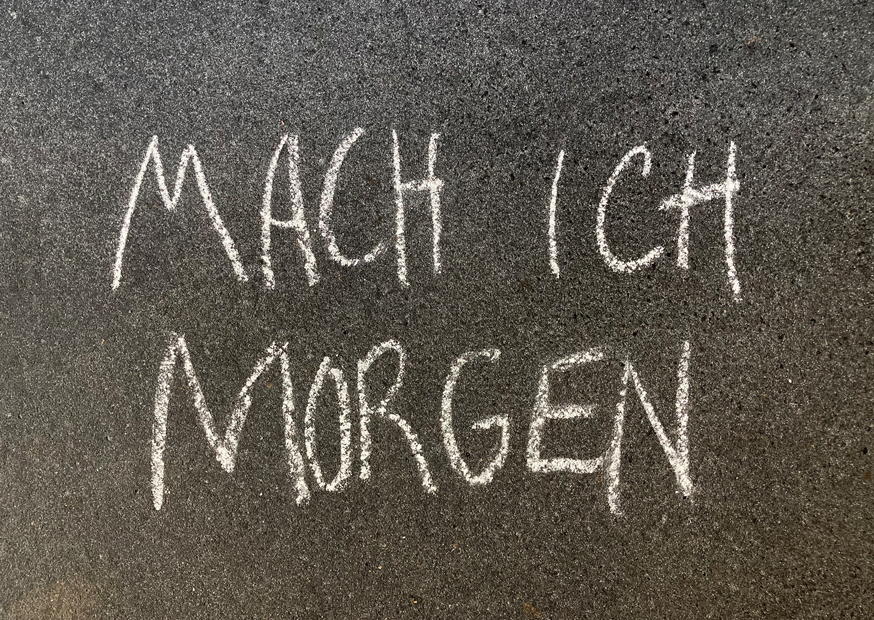 MACH ICH
MORGEN